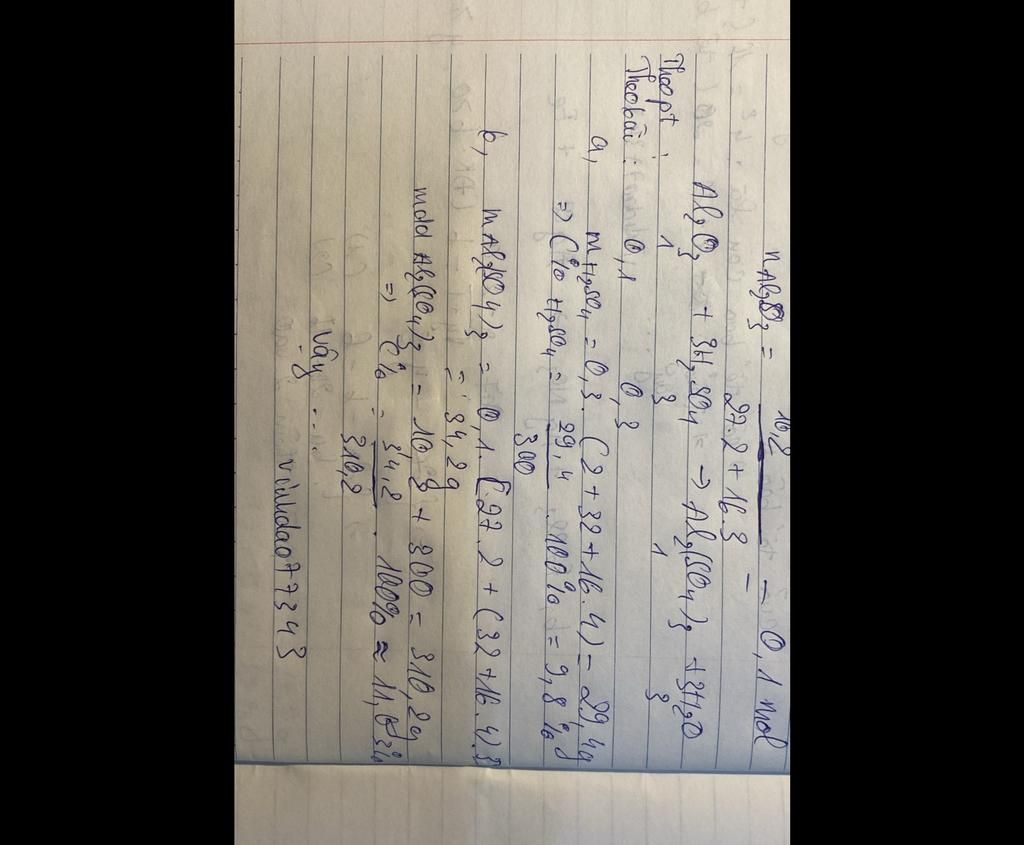 nAl₂O₃ = 10,2 / 27.2 + 16.3 = 0,1 mol
Al₂O₃ + 3H₂SO₄ → Al₂(SO₄)₃ + 3H₂O
Theo pt : 1 3 1 3
Theo bài : 0,1 0,3
a, mH₂SO₄ = 0,3. (2 + 32 + 16.4) = 29,4g
⇒ C% H₂SO₄ = 29,4 / 300 . 100% = 9,8%
b, mAl₂(SO₄)₃ = 0,1. [27.2 + (32 + 16.4).3]
= 34,2g
mdd Al₂(SO₄)₃ = 10,2 + 300 = 310,2g
⇒ C% = 34,2 / 310,2 . 100% ≈ 11,03%
Vậy ....
vinhdao77343